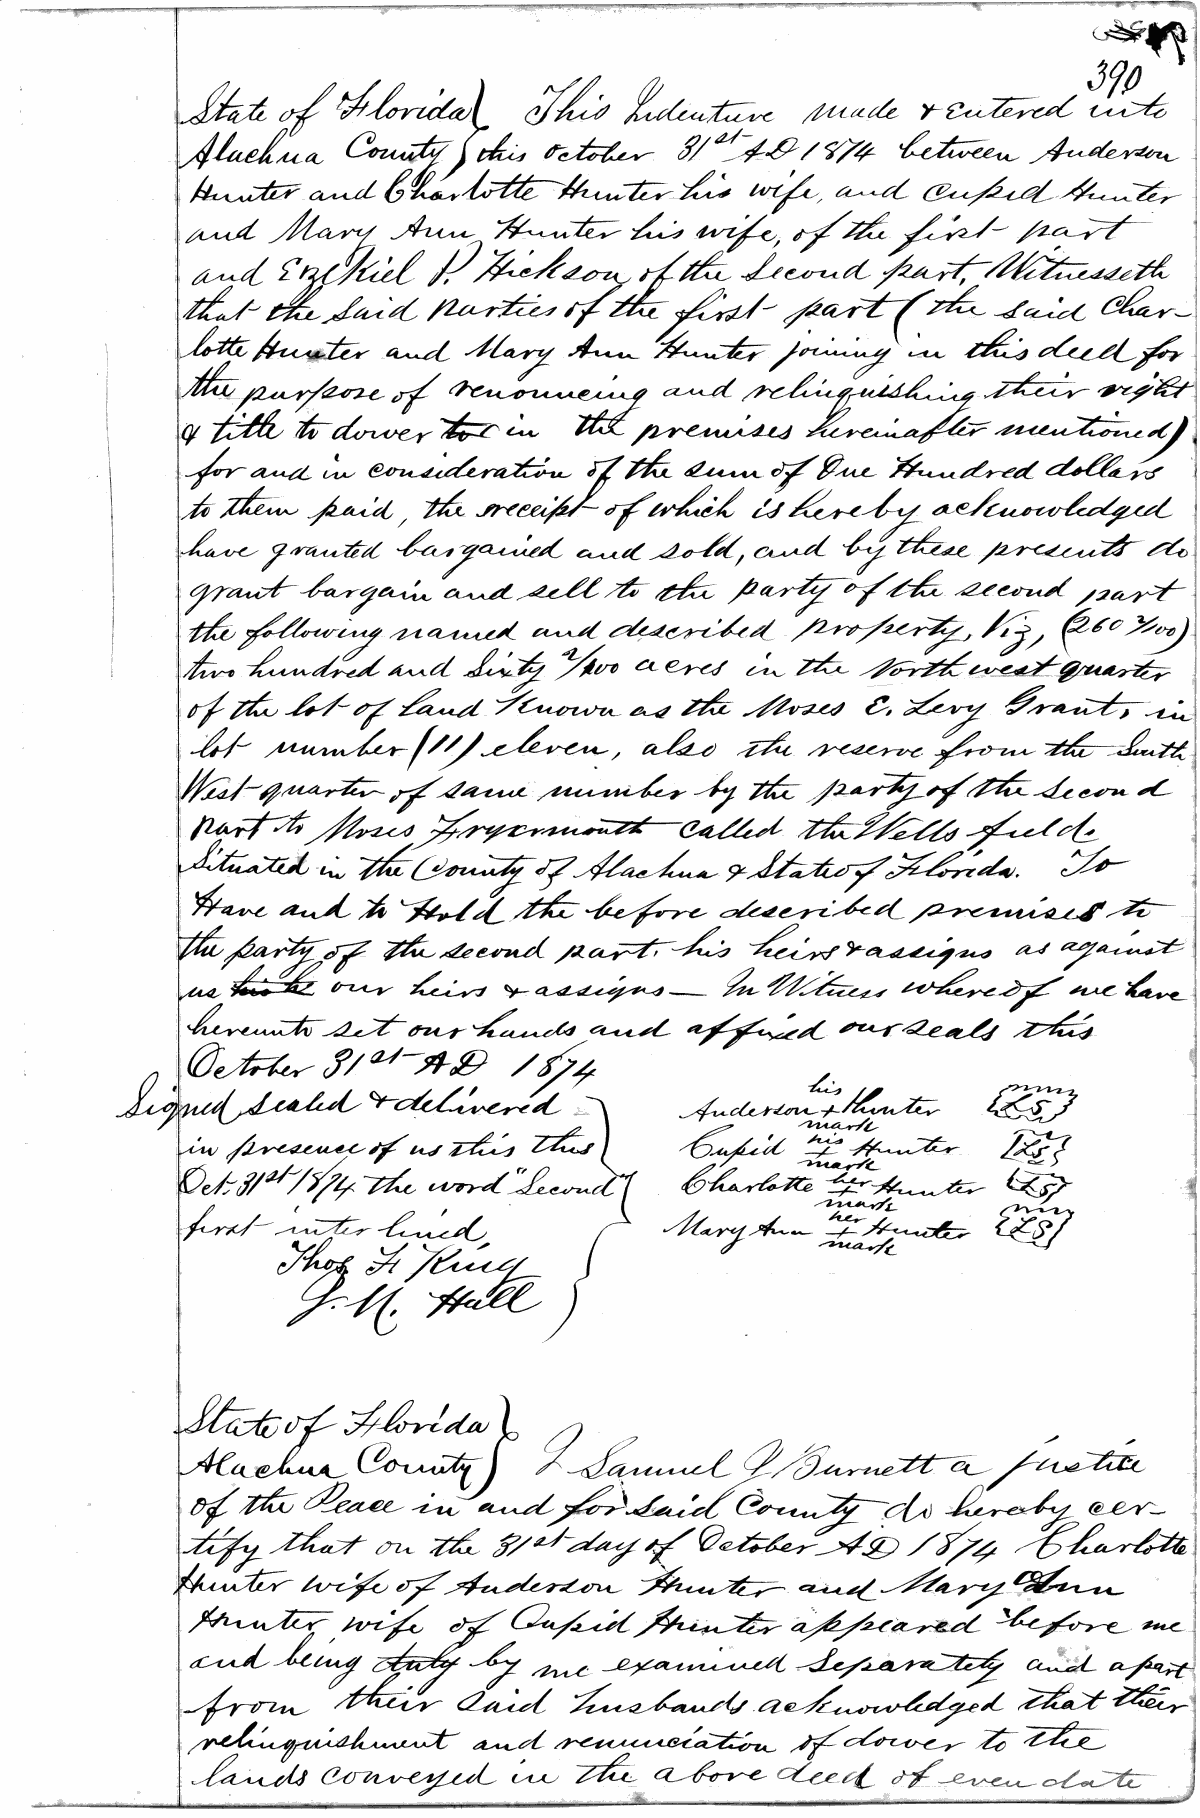 390
State of Florida } This Indenture made & entered into
Alachua County } this October 31st AD 1874 between Anderson
Hunter and Charlotte Hunter his wife, and Cupid Hunter
and Mary Ann Hunter his wife, of the first part
and Ezekiel P. Hickson of the Second part, Witnesseth
that the Said parties of the first part (the said Char-
lotte Hunter and Mary Ann Hunter joining in this deed for
the purpose of renouncing and relinquishing their right
& title to dower to in the premises hereinafter mentioned)
for and in consideration of the sum of One Hundred dollars
to them paid, the receipt of which is hereby acknowledged
have granted bargained and sold, and by these presents do
grant bargain and sell to the party of the second part
the following named and described property, Viz, (260 2/100)
two hundred and Sixty 2/100 acres in the North west quarter
of the lot of land Known as the Moses E. Levy Grant, in
lot number (11) eleven, also the reserve from the South
West quarter of same number by the party of the Second
part to Moses called the Wells field.
Situated in the County of Alachua & State of Florida. To
Have and to Hold the before described premises to
the party of the second part. his heirs & assigns as against
us his he our heirs & assigns — In Witness whereof we have
hereunto set our hands and affixed our seals this
October 31st AD 1874
Signed sealed & delivered
in presence of us this this
Oct. 31st 1874 the word "Second"
first inter lined,
Thos F King
J. H. Hall
Anderson his + mark Hunter {LS}
Cupid his + mark Hunter {LS}
Charlotte her + mark Hunter {LS}
Mary Ann her + mark Hunter {LS}
State of Florida }
Alachua County } I Samuel J Burnett a justice
of the Peace in and for said County do hereby cer-
tify that on the 31st day of October AD 1874 Charlotte
Hunter wife of Anderson Hunter and Mary Ann
Hunter wife of Cupid Hunter appeared before me
and being duly by me examined Separately and apart
from their Said husbands acknowledged that their
relinquishment and renunciation of dower to the
lands conveyed in the above deed of even date